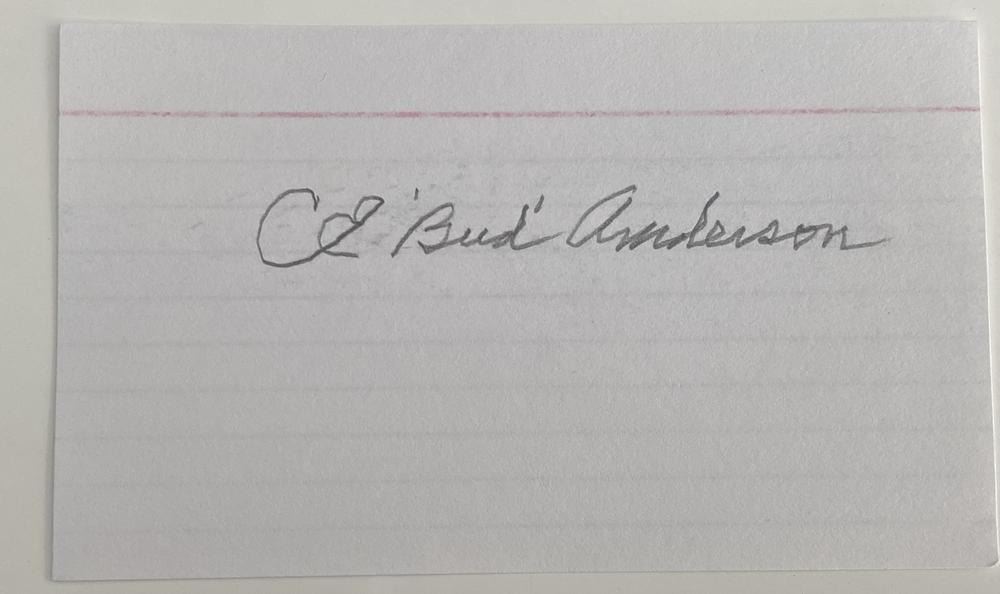 CE 'Bud' Anderson